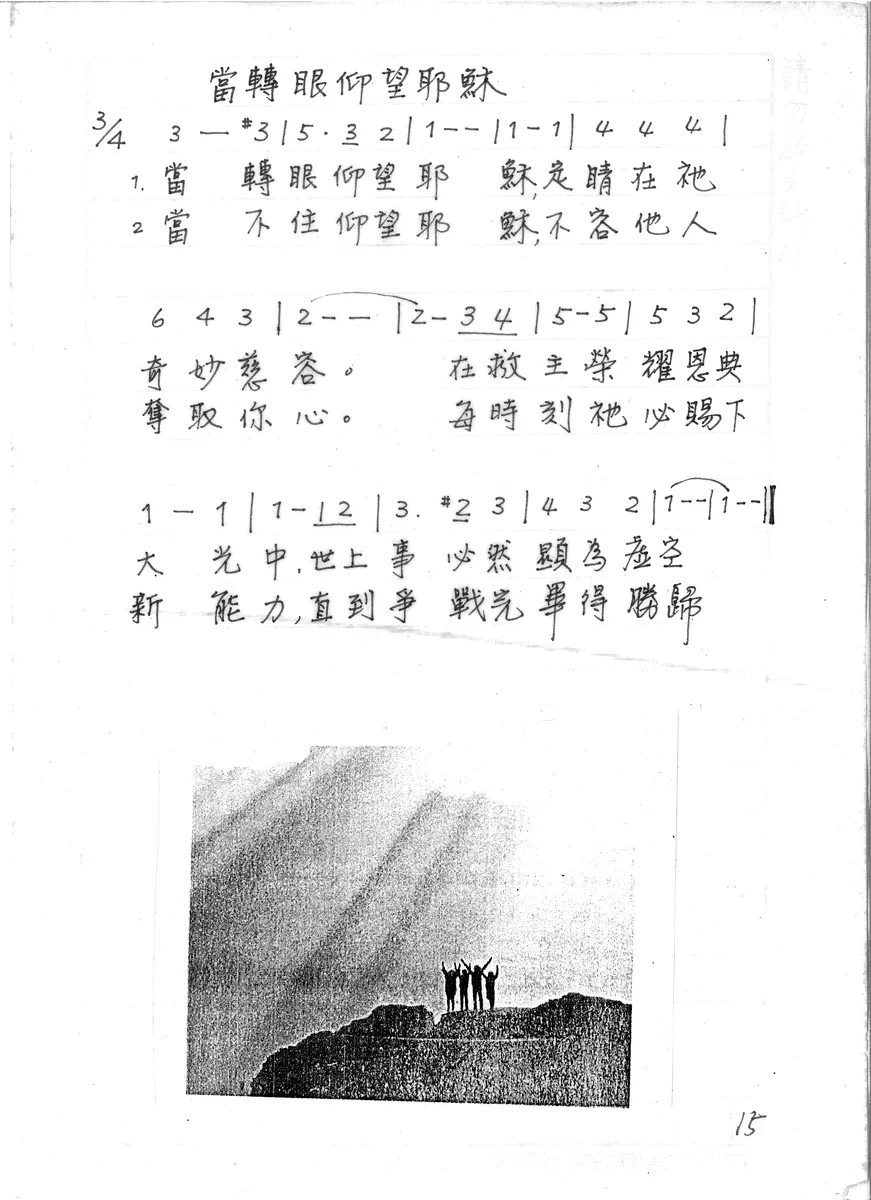 當轉眼仰望耶穌
3/4 3 — #3 | 5 · 3 2 | 1 - - | 1 - 1 | 4 4 4 |
1. 當 轉眼仰望耶 穌,定睛在祂
2 當 不住仰望耶 穌,不容他人
6 4 3 | 2 - - | 2 - 3 4 | 5 - 5 | 5 3 2 |
奇妙慈容。 在救主榮耀恩典
奪取你心。 每時刻祂必賜下
1 — 1 | 1 - 1 2 | 3. #2 3 | 4 3 2 | 1 - - | 1 - - ||
大 光中,世上事 必然顯為虛空
新 能力,直到爭 戰完畢得勝歸
15